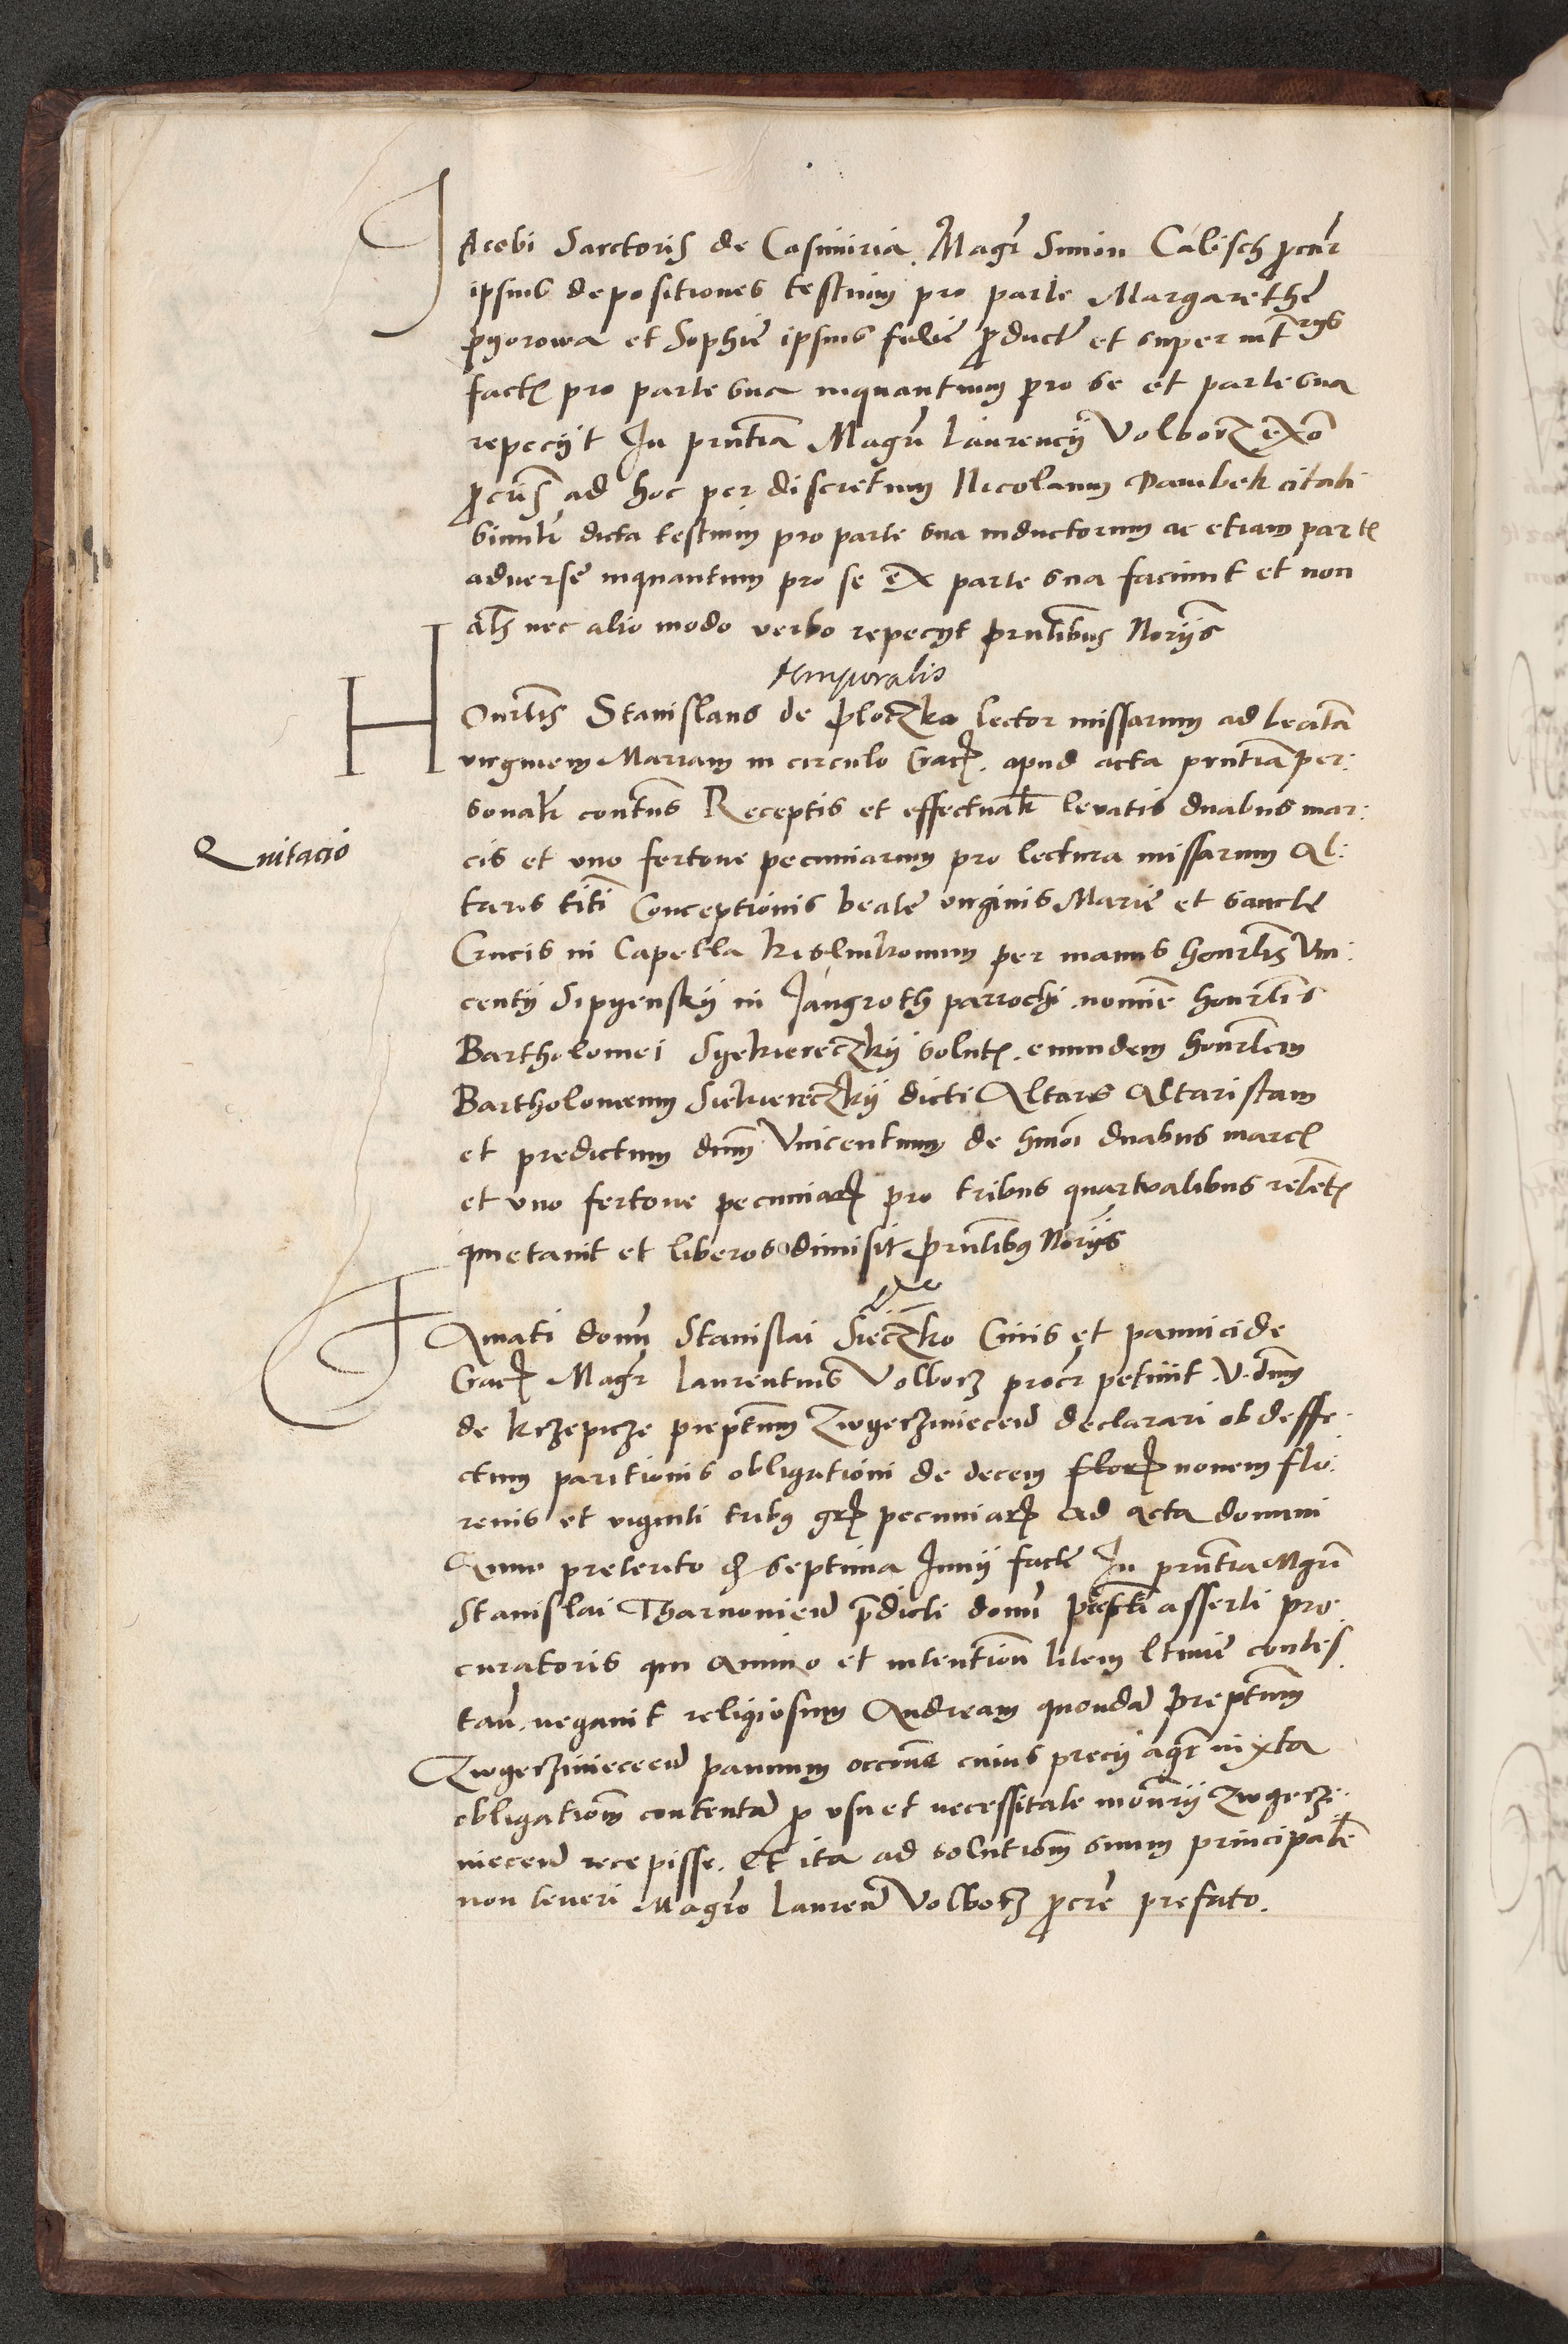 Jacobi Sarctoris de Casimiria. Magr Simon Calisch procur
ipsius depositiones testium pro parte Margarethe
pyorowa et Sophie ipsius filie producte et super
facte pro parte sua inquantum pro se et parte sua
repecyt In pntia Magri Laurencij Volborz exo
ad hoc per discretum Nicolaum Dambek citati
similr dicta testium pro parte sua inductorum ac etiam parte
adverse inquantum pro se ex parte sua faciunt et non
als nec alio modo verbo repecyt pntibus Norijs
temporalis
Honrlis Stanislaus de plotzko lector missarum ad beatam
virginem Mariam in circulo Crac. apud acta pntia per:
sonalr Receptis et effectualr levatis duabus mar:
Quitacio
cis et uno fertone pecuniarum pro lectura missarum Al:
taris titi Conceptionis beate virginis Marie et sancte
Crucis in Capella per manus honrlis Vin:
centij Sipyenskij in Jangroth parrochi nomine honrlis
Bartholomei Syekiereczkij solute. eundem honrlem
Bartholomeum Siekiereczkij dicti Altaris Altaristam
et predictum dnm Vincentium de hmoi duabus marc
et uno fertone pecuniar pro tribus quartalibus retent
quietavit et liberos dimisit pntibus Norijs
Famati domi Stanislai Sieczko Civis et pannicide
Crac Magr Laurentius Volborz procr petivit V. dnm
de krzepicze preptum Zwyerziniecen declarari ob deffe
ctum paritionis obligationi de decem flor novem flo:
renis et viginti tribus gr pecuniar ad acta domini
Anno preterito die septima Junij facte In pntia Mgri
Stanislai Tharnovien predicti domi prepti asserti pro
curatoris qui animo et intentione litem ltime contes
tan. negavit religiosum Andream quondam preptum
Zwyerziniecen pannum cuius precij iuxta
obligationem contentam pro usu et necessitate monrij Zwyerzi
niecen recepisse. Et ita ad solutionem suum principalem
non teneri Magro Lauren Volborz procre prefato.